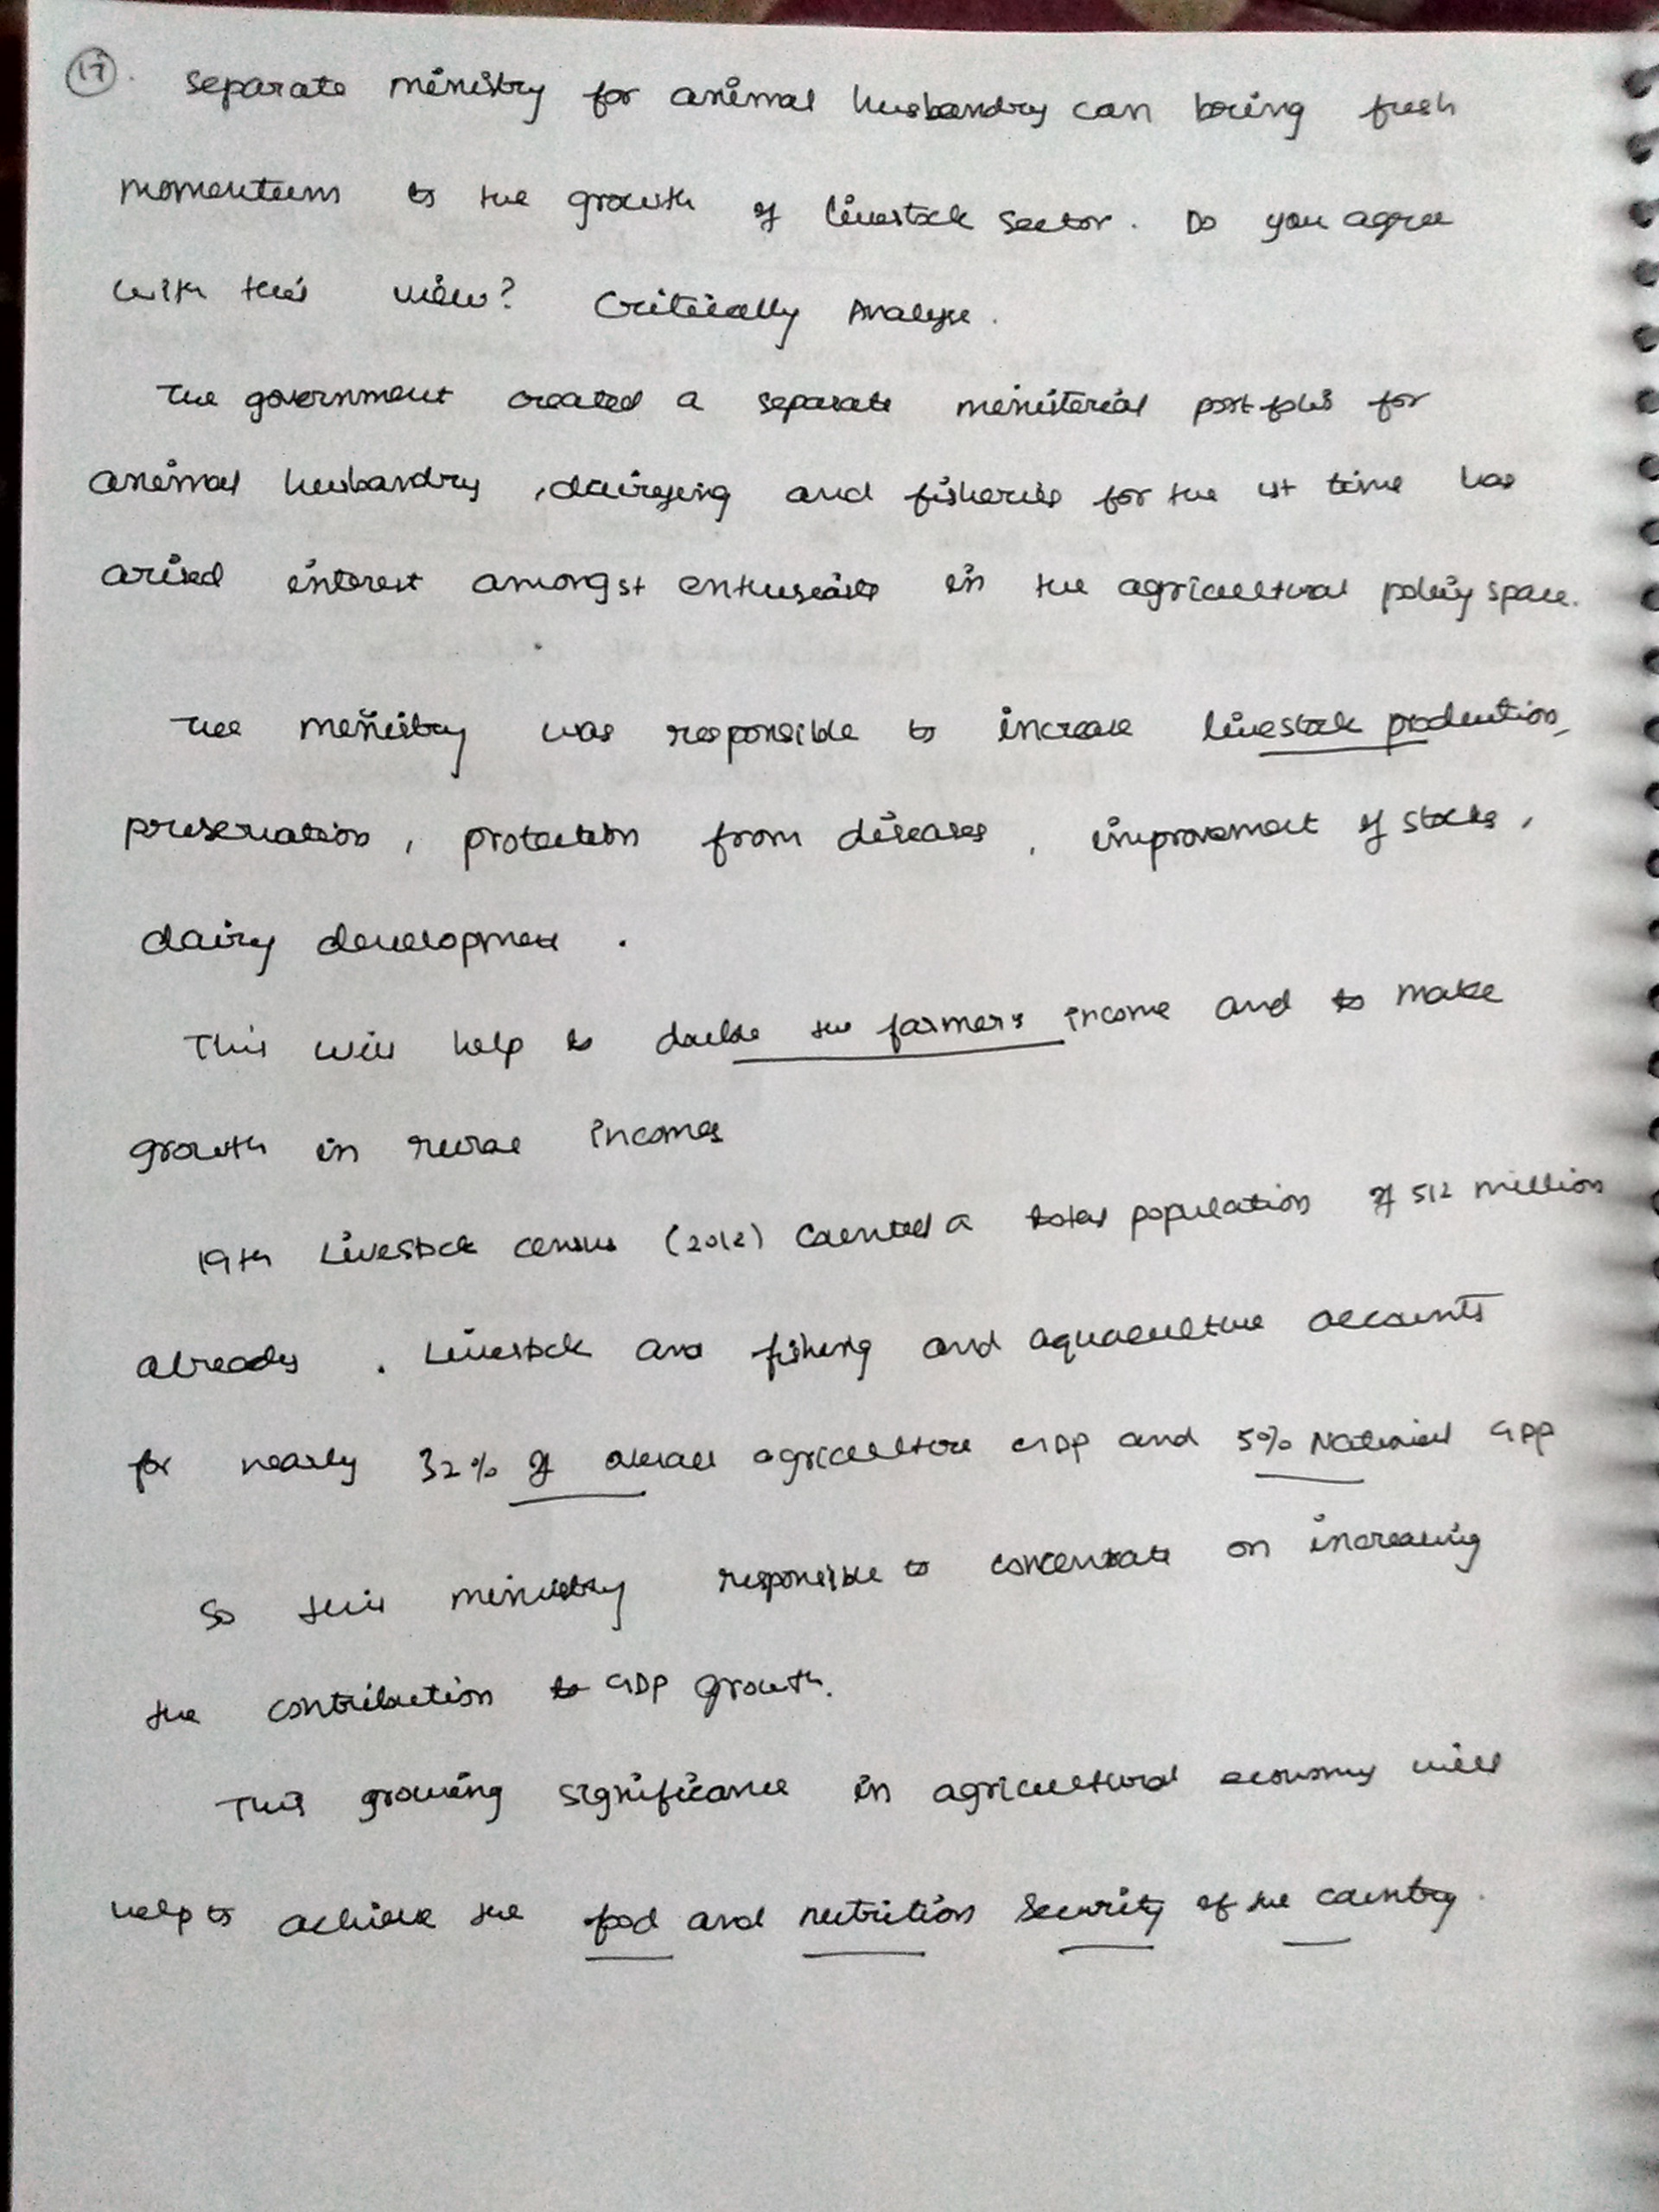 17. Separate ministry for animal husbandry can bring fresh
momentum to the growth of livestock sector. Do you agree
with this view? Critically Analyse.
The government created a separate ministerial portfolio for
animal husbandry, dairying and fisheries for the 1st time has
arised interest amongst enthusiasts in the agricultural policy space.
The ministry was responsible to increase livestock production,
preservation, protection from diseases, improvement of stocks,
dairy development.
This will help to double the farmer's income and to make
growth in rural incomes
19th Livestock census (2012) Counted a total population of 512 million
already. Livestock and fishing and aquaculture accounts
for nearly 32% of overall agriculture GDP and 5% National GDP
So this ministry responsible to concentrate on increasing
the contribution to GDP growth.
This growing significance in agricultural economy will
help to achieve the food and nutrition security of the country.